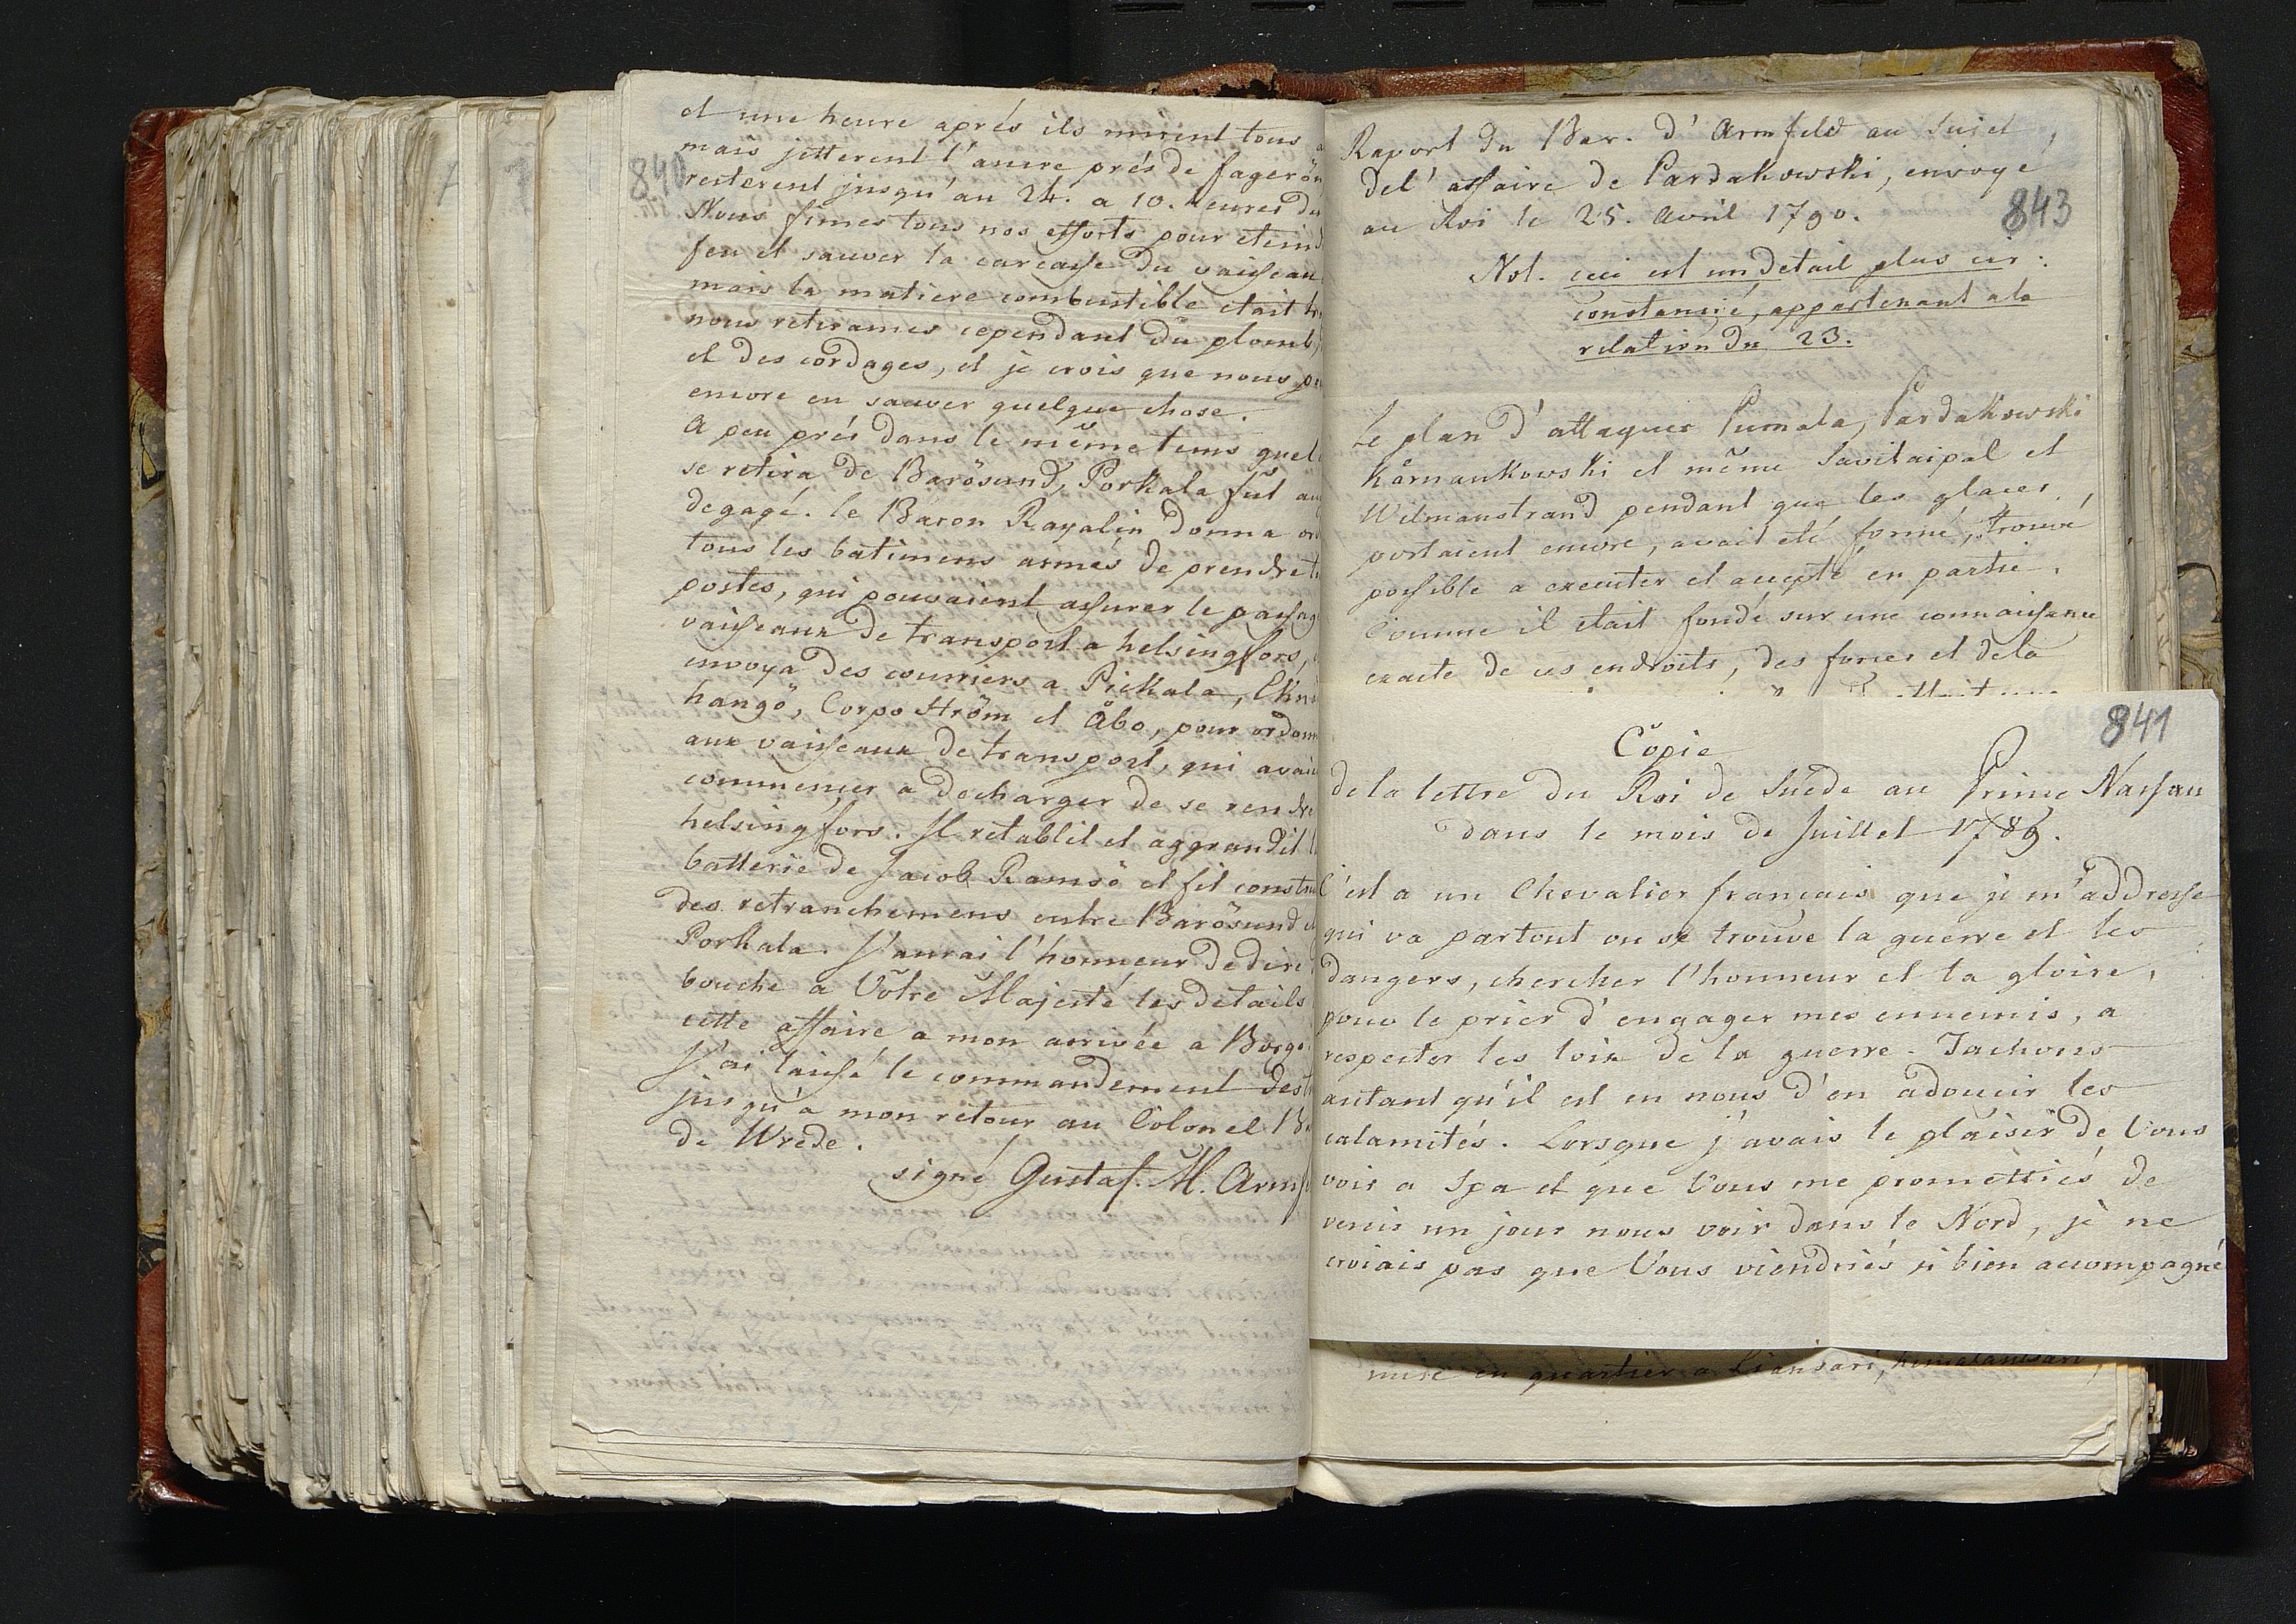 840
et une heure aprés ils mirent tous a
mais jetterent l'ancre prés de fagerön
resterent jusqu'au 24. a 10. heures du
Nous fimes tous nos efforts pour etein
feu et sauver la carcasse du vaisseau
mais la matiere combustible etait tr
nous retirames cependant du plomb,
et des cordages, et je crois que nous p
encore en sauver quelque chose.
A peu prés dans le même tems quel
se retira de Barösund, Porkala fut au
degagé. le Baron Rayalin donna or
tous les batimens armés de prendre
postes, qui pouvaient assurer le passag
vaisseaux de transport a helsingfors,
envoya des couriers a Pickala, Ekn
hangö, Corpo Ström et Åbo, pour ordon
aux vaisseaux de transport, qui avaie
commencer a decharger de se rendre
helsingfors. Il retablit et aggrandit l
batterie de Jacob Ramsö et fit constru
des retranchemens entre Barösund et
Porkala. J'aurai l'honneur de dire
bouche a Vôtre Majesté les details
cette affaire a mon arrivée a Borgo.
J'ai laissé le commandement des
jusqu'a mon retour au Colonel B
de Wrede.
signé Gustaf. M. Armf
Raport du Bar. d'Armfeld au Sujet
del' affaire de Pardakowski, envoyé
au Roi le 25. Avril 1790.
843
Not. ceci est un detail plus cir:
constancié, appartenant a la
relation du 23.
Le plan d'attaquer Pumala, Pardakowski
Kärnankowski et même Savitaipal et
Wilmanstrand pendant que les glaces
portaient encore, avait eté formé, trouvé
possible a executer et accepté en partie.
Comme il etait fondé sur une connaissance
exacte de ces endroits, des forces et dela
841
Copie
de la lettre du Roi de Suede au Prince Nassau
dans le mois de Juillet 1789.
C'est a un Chevalier francais que je m'addresse
qui va partout ou se trouve la guerre et les
dangers, chercher l'honneur et la gloire,
pour le prier d'engager mes ennemis, a
respecter les loix de la guerre. Tachons
autant qu'il est en nous d'en adoucir les
calamités. Lorsque j'avais le plaisir de Vous
voir a Spa et que Vous me promettiés de
venir un jour nous voir dans le Nord, je ne
croiais pas que Vous viendriés si bien accompagné
mise en quartier a